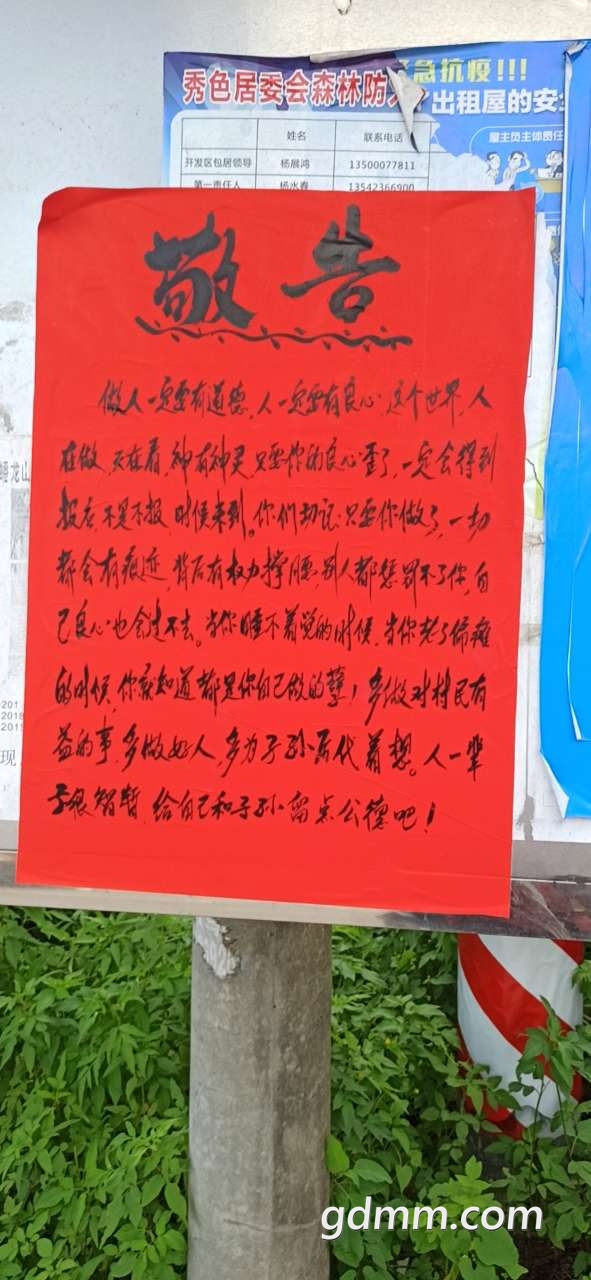 急抗疫!!!
秀色居委会森林防火
出租屋的安全
屋主负主体责任
姓名 联系电话
开发区包居领导 杨展鸿 13500077811
第一责任人 杨水春 13542366900
敬告
做人一定要有道德,人一定要有良心.这个世界,人
在做,天在看,神有神灵.只要你的良心歪了,一定会得到
报应,不是不报,时候未到。你们切记:只要你做了,一切
都会有痕迹,背后有权力撑腰,别人都惩罚不了你,自
己良心也会过不去。当你睡不着觉的时候,当你老了偏瘫
的时候,你就知道都是你自己做的孽!多做对村民有
益的事,多做好人,多为子孙后代着想。人一辈
子很智暂,给自己和子孙留点公德吧!
蟠龙山
201
2018
2019
现
gdmm.com